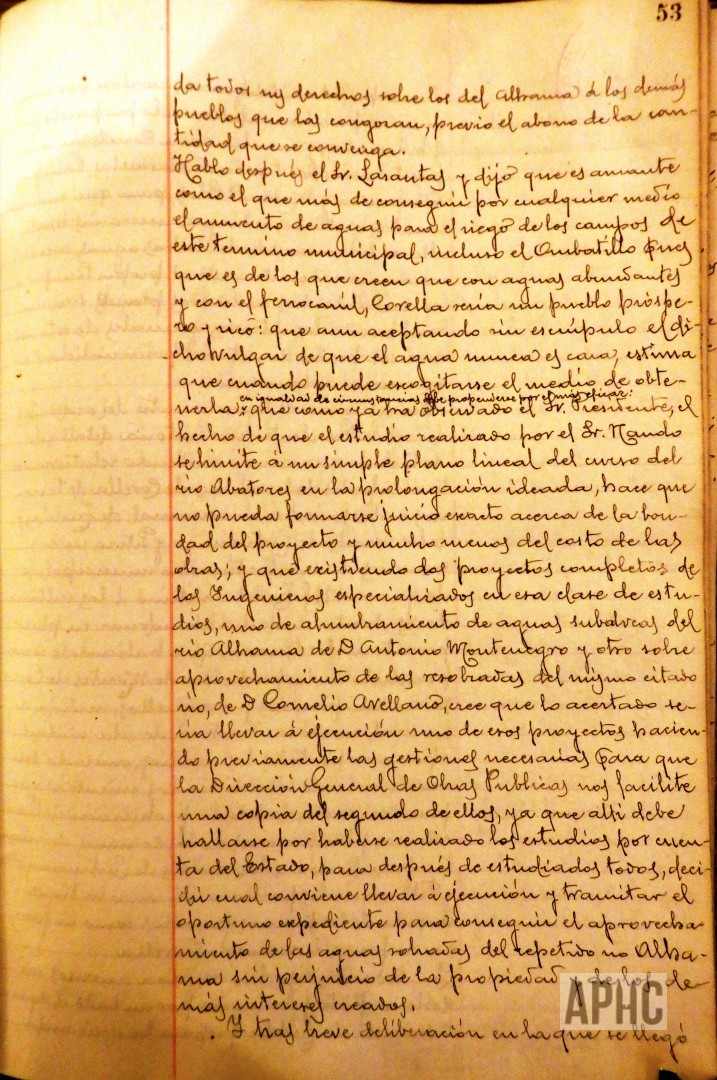 53
da todos sus derechos sobre los del Alhama á los demás
pueblos que los congozan, previo el abono de la can-
tidad que se convenga.
Habló después el Sr. Lasantas y dijo que es amante
como el que más de conseguir por cualquier medio
el aumento de aguas para el riego de los campos de
este termino municipal, incluso el Ombatillo pues
que es de los que creen que con aguas abundantes
y con el ferrocarril, Corella sería un pueblo próspe-
ro y rico: que aun aceptando sin escrúpulo el di-
cho vulgar de que el agua nunca es cara, estima
que cuando puede escogitarse el medio de obte-
en igualdad de circunstancias debe propenderse por el más eficaz:
nerla, que como ya ha observado el Sr. Presidente, el
hecho de que el estudio realizado por el Sr. Mando
se limite á un simple plano lineal del curso del
rio Abatores en la prolongación ideada, hace que
no pueda formarse juicio exacto acerca de la bon-
dad del proyecto y mucho menos del costo de las
obras; y que existiendo dos proyectos completos de
los Ingenieros especializados en esa clase de estu-
dios, uno de alumbramiento de aguas subalveas del
rio Alhama de D Antonio Montenegro y otro sobre
aprovechamiento de las resobradas del mismo citado
rio, de D Cornelio Arellano, cree que lo acertado se-
ria llevar á ejecución uno de esos proyectos hacien-
do previamente las gestiones necesarias para que
la Dirección General de Obras Publicas nos facilite
una copia del segundo de ellos, ya que allí debe
hallarse por haberse realizado los estudios por cuen-
ta del Estado, para después de estudiados todos, deci-
dir cual conviene llevar á ejecución y tramitar el
oportuno expediente para conseguir el aprovecha
miento de las aguas sobradas del repetido rio Alha-
ma sin perjuicio de la propiedad y de los de-
más intereses creados.
Y tras breve deliberación en la que se llegó
APHC